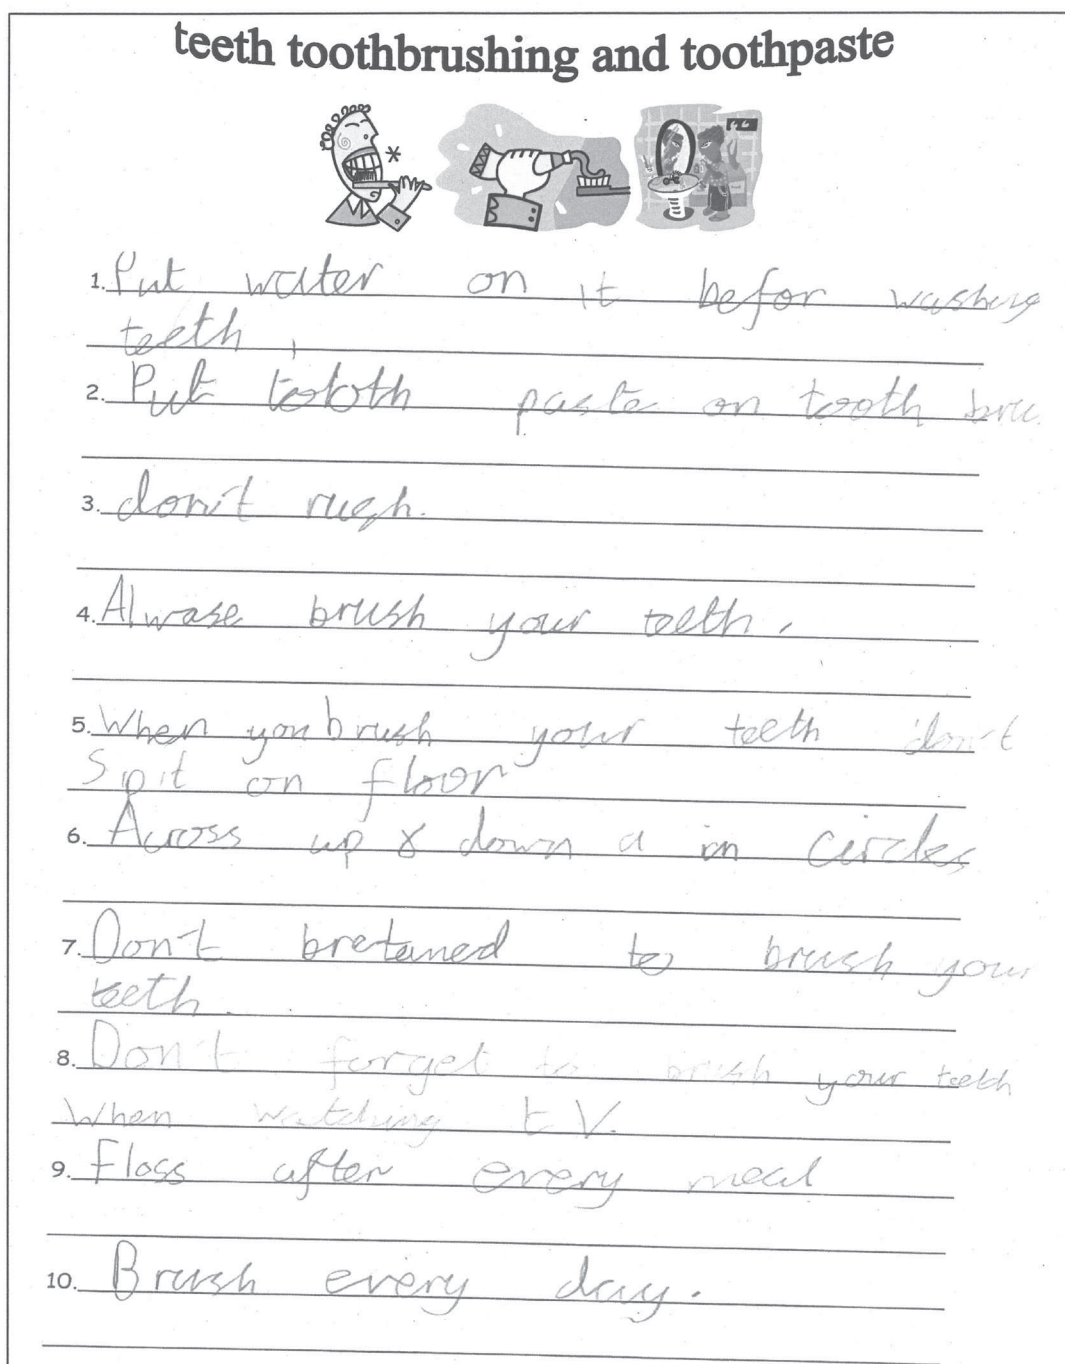 teeth toothbrushing and toothpaste
1. Put water on it befor washing
teeth.
2. Put tooth paste on tooth bru
3. don't rush.
4. Alwase brush your teeth.
5. When you brush your teeth don't
Spit on floor
6. Across up & down a in circles
7. Don't bretaned to brush your
teeth.
8. Don't forget to brush your teeth
When watching t V.
9. Floss after every meal
10. Brush every day.